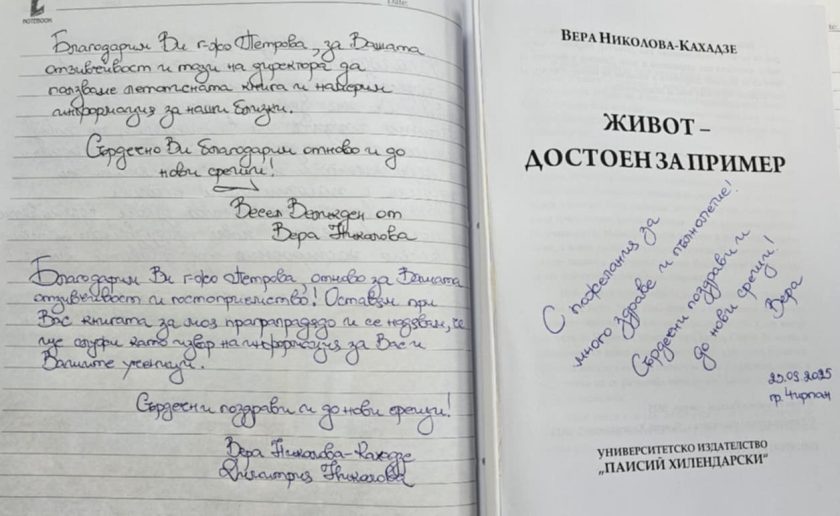 NOTEBOOK
Благодарим Ви г-жо Петрова, за Вашата
отзивчивост и тази на директора да
ползваме летописната книга и намерим
информация за наши близки.
Сърдечно Ви благодарим отново и до
нови срещи!
Весел Великден от
Вера Николова
Благодарим Ви г-жо Петрова, отново за Вашата
отзивчивост и гостоприемство! Оставям при
Вас книгата за моя прапрапрадядо и се надявам, че
ще служи като извор на информация за Вас и
Вашите ученици.
Сърдечни поздрави и до нови срещи!
Вера Николова-Кахадзе
Димитрия Николова
ВЕРА НИКОЛОВА-КАХАДЗЕ
ЖИВОТ –
ДОСТОЕН ЗА ПРИМЕР
С пожелания за
много здраве и пълнолетие!
Сърдечни поздрави и
до нови срещи!
Вера
гр. Чирпан
УНИВЕРСИТЕТСКО ИЗДАТЕЛСТВО
„ПАИСИЙ ХИЛЕНДАРСКИ“